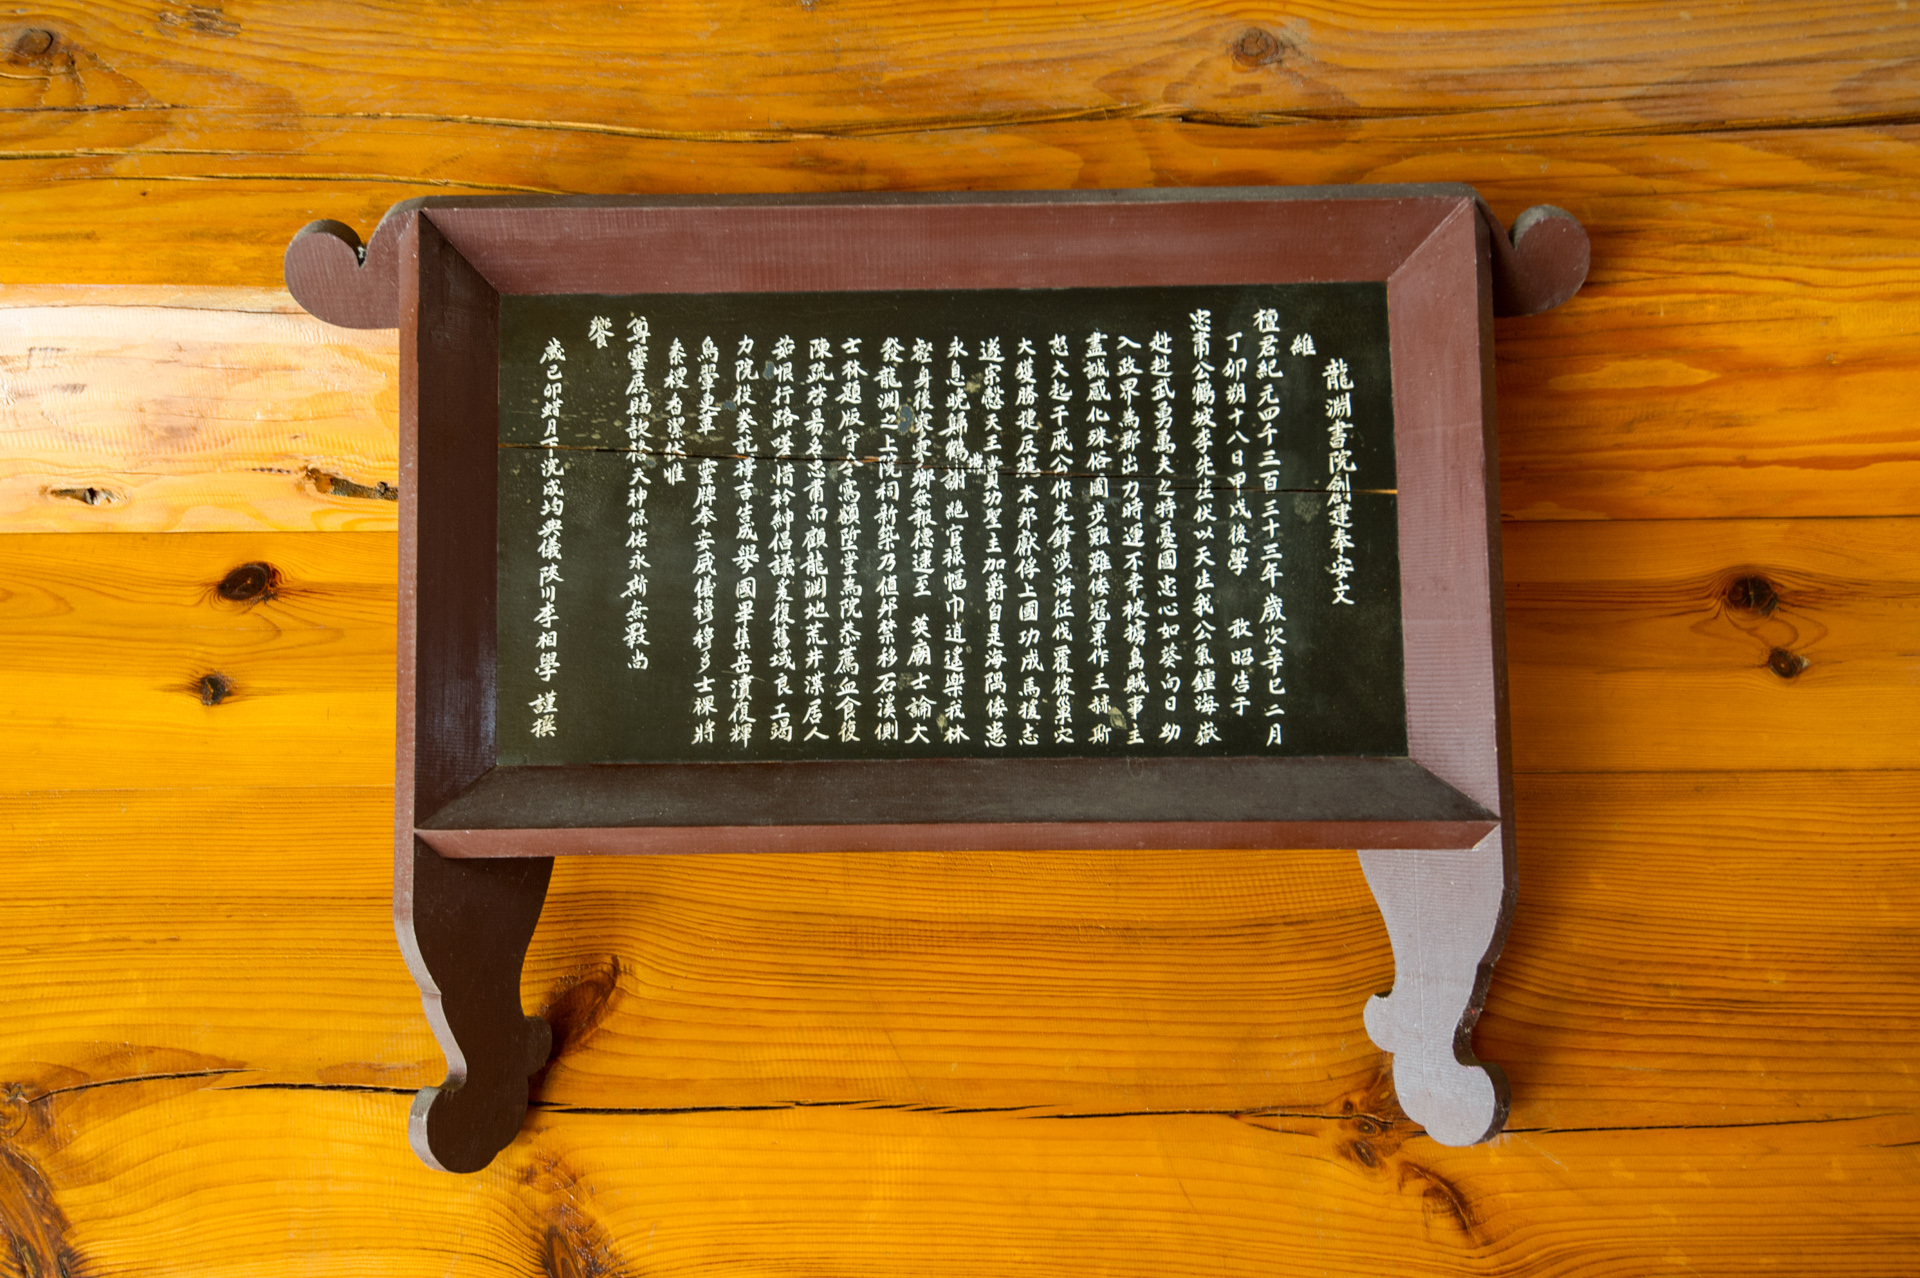 龍淵書院創建奉安文
維
檀君紀元四千三百三十三年歲次辛巳二月
丁卯朔十八日甲戌後學 敢昭告于
忠肅公鶴坡李先生伏以天生我公氣鍾海嶽
赳赳武勇萬夫之特憂國忠心如葵向日幼
入政界為郡出力時運不幸被擄島賊事主
盡誠感化殊俗國步艱難倭冠累作王赫斯
怒大起干戚公作先鋒涉海征伐覆彼巢穴
大獲勝捷反旆本邦獻俘上國功成馬援志
遂宗慤天王嘗貢功聖主加爵自是海隅倭患
永息晚歸鶴謝絕官祿幅巾逍遙樂我林
壑身後寥寥鄉無報德逮至 英廟士論大
發龍淵之上院祠新築乃值邦禁移石溪側
士林題版守令寫額陞堂為院恭薦血食復
陳疏啓易名忠肅而顧龍淵地荒井渫居人
茹恨行路嗟惜衿紳倡議爰復舊域良工竭
力院役奏訖擇吉告成舉國畢集岳瀆復輝
鳥翬更革 靈牌奉安威儀穆穆多士裸將
黍稷香潔伏惟
尊靈庶賜歆格天神保佑永斯無斁尚
饗
歲己卯蜡月下浣成均典儀陜川李相學 謹撰